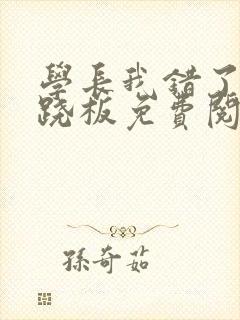 學長我錯了
跷板免費閱
孫奇茹